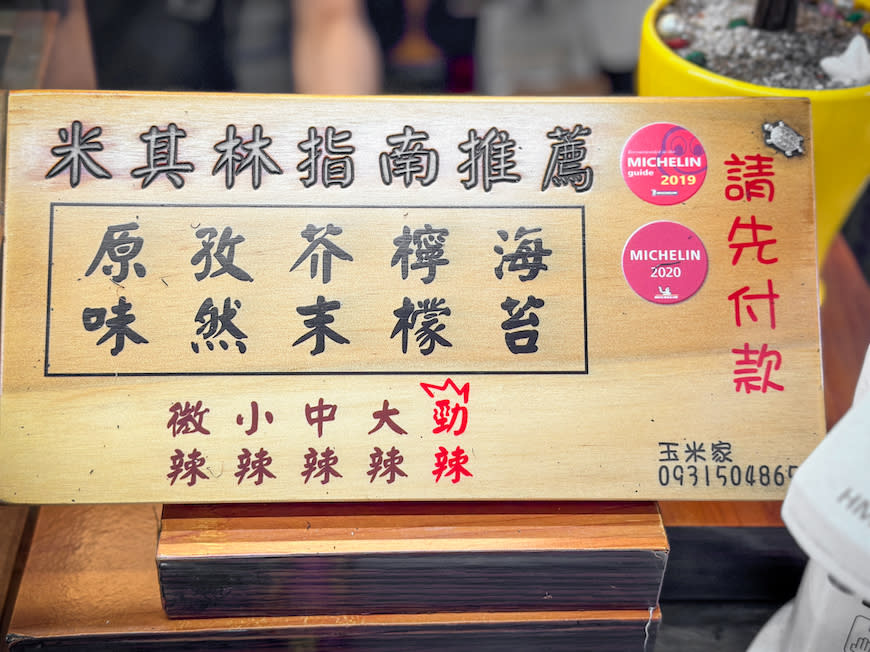 米其林指南推薦
MICHELIN
guide 2019
MICHELIN
2020
請先付款
原味 孜然 芥末 檸檬 海苔
微辣 小辣 中辣 大辣 勁辣
玉米家
0931504865
HM